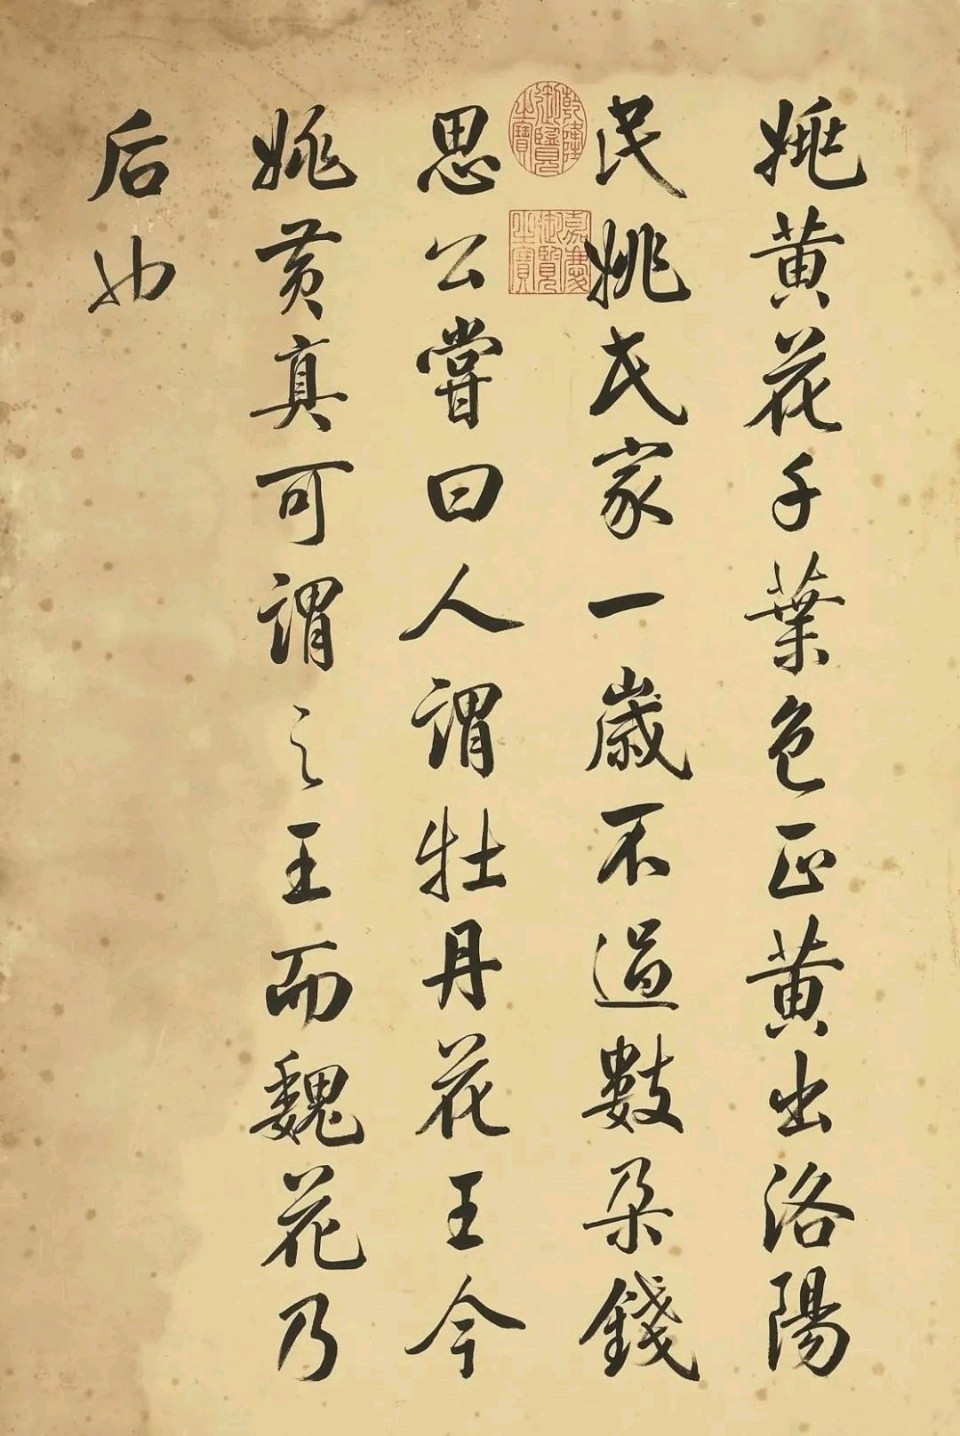 姚黄花千葉色正黄出洛陽
民姚氏家一歳不過數朵錢
思公嘗曰人謂牡丹花王今
姚黄真可謂之王而魏花乃
后也
乾隆御覽之寶
嘉慶御覽之寶